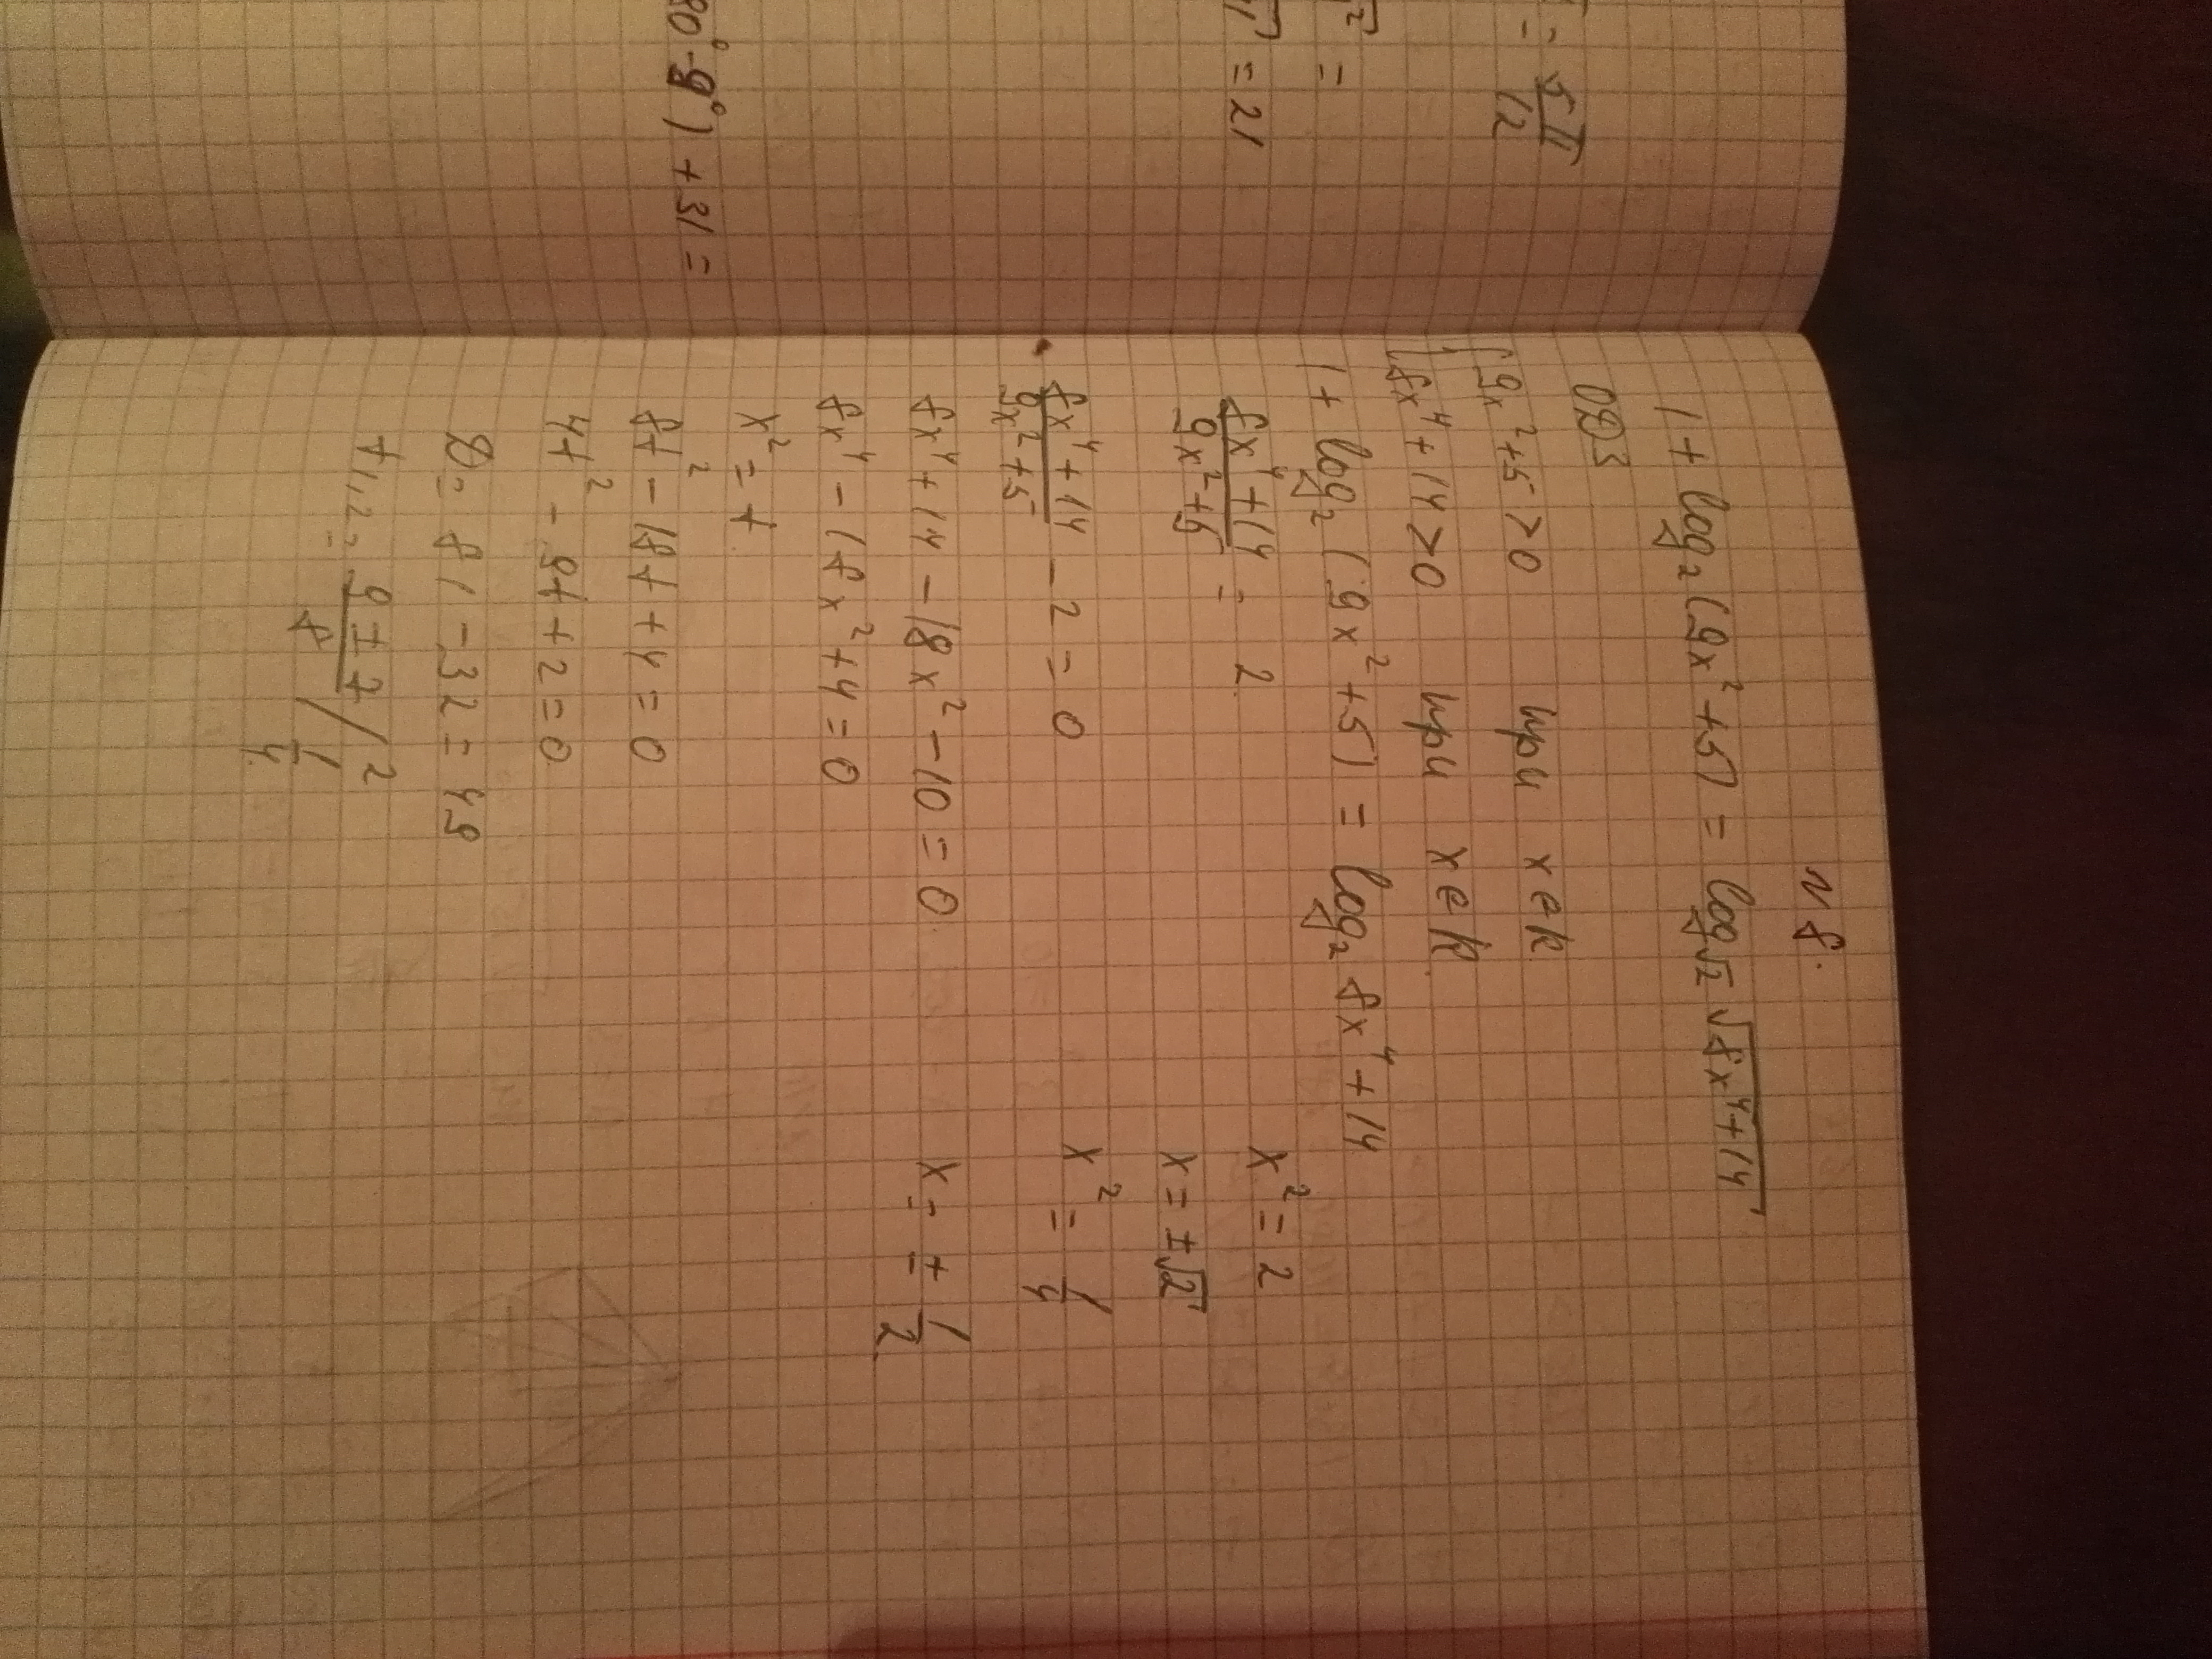 x = 5π/12
√2 =
√1 = 21
80° - 9°) + 31 =
N 8.
1 + log₂(9x² + 5) = log√2 √(8x⁴ + 14)
ОДЗ
{ 9x² + 5 > 0 при x ∈ R
{ 8x⁴ + 14 > 0 при x ∈ R
1 + log₂(9x² + 5) = log₂ 8x⁴ + 14
(8x⁴ + 14)/(9x² + 5) = 2
(8x⁴ + 14)/(9x² + 5) - 2 = 0
8x⁴ + 14 - 18x² - 10 = 0
8x⁴ - 18x² + 4 = 0
x² = t
8t² - 18t + 4 = 0
4t² - 9t + 2 = 0
D = 81 - 32 = 49
t₁,₂ = (9 ± 7)/8 / 2
1/4
x² = 2
x = ±√2
x² = 1/4
x = ± 1/2